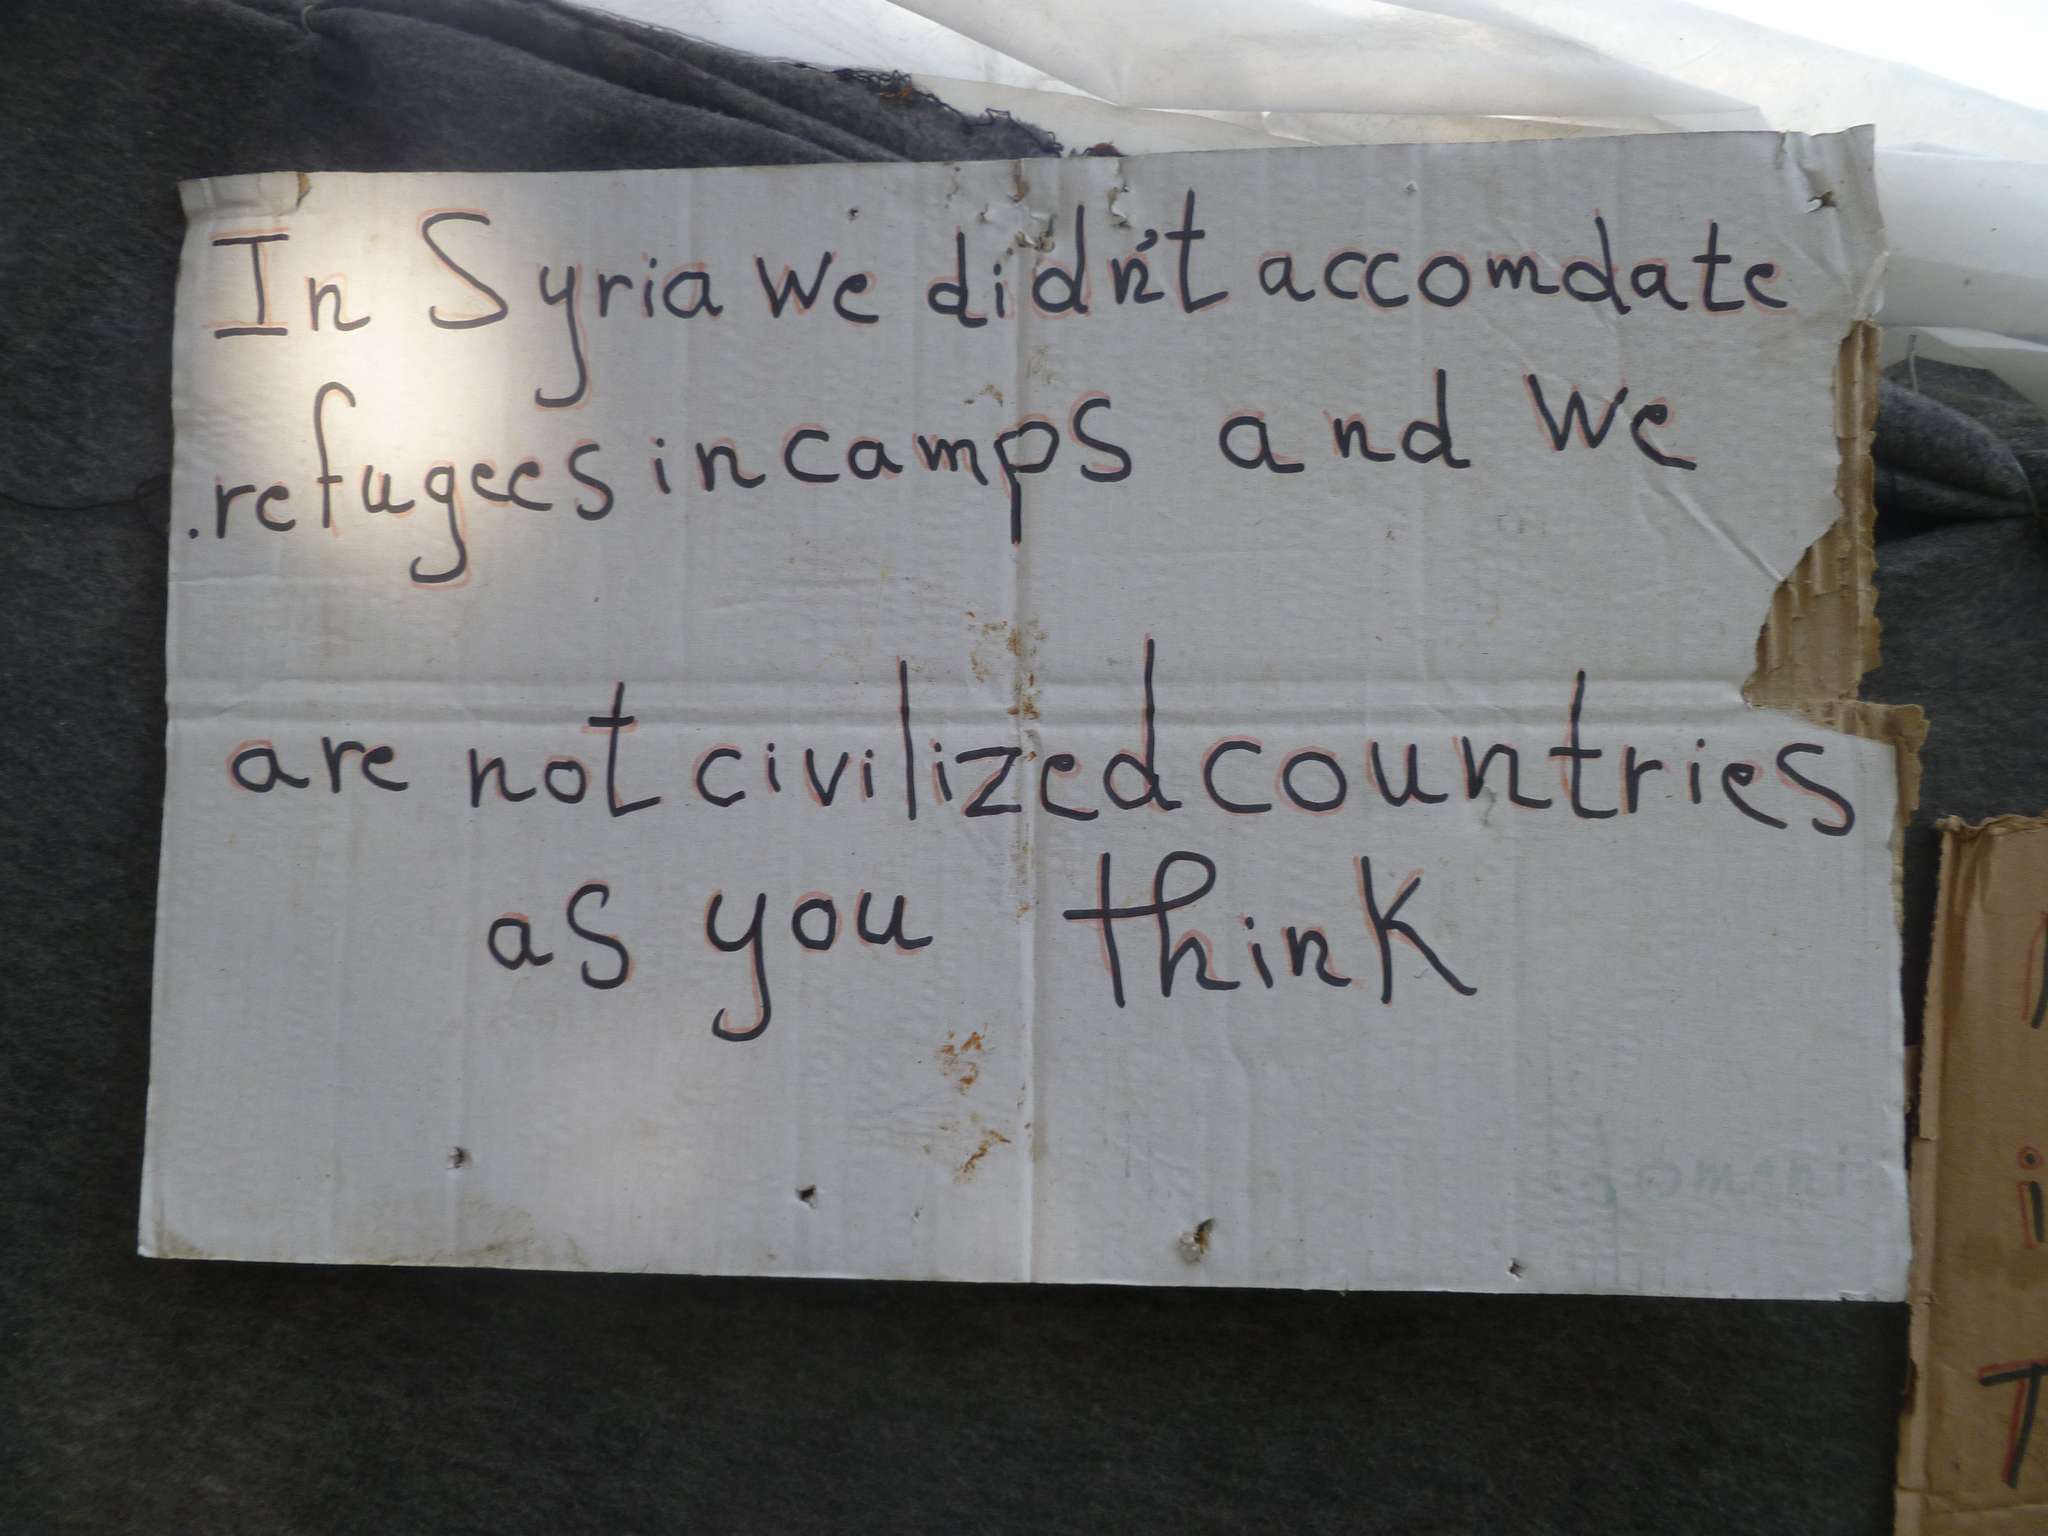 In Syria we didn't accomdate
.refugees in camps and we
are not civilized countries
as you think